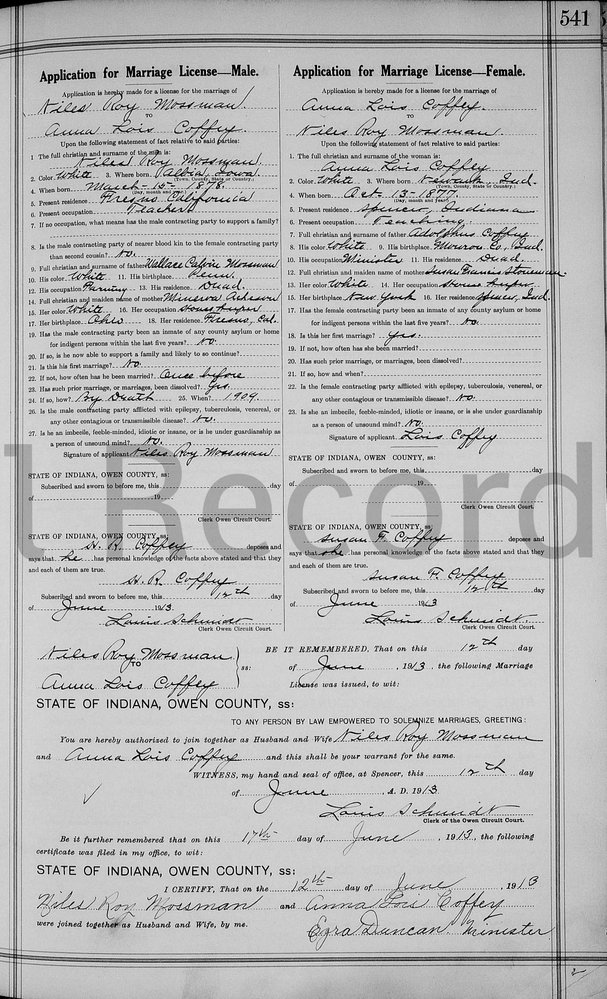 541
Application for Marriage License—Male.
Application is hereby made for a license for the marriage of
Niles Roy Mossman
TO
Anna Lois Coffey
Upon the following statement of fact relative to said parties:
1 The full christian and surname of the man is:
Niles Roy Mossman
2. Color White 3. Where born Albia, Iowa
(Town, County, State or Country.)
4. When born March-15-1878.
(Day, month and year.)
5. Present residence Fresno California
6. Present occupation Teacher
7. If no occupation, what means has the male contracting party to support a family?
8. Is the male contracting party of nearer blood kin to the female contracting party
than second cousin? No.
9. Full christian and surname of father Wallace Calvin Mossman
10. His color White 11. His birthplace Penn.
12. His occupation Farming 13. His residence Dead.
14. Full christian and maiden name of mother Minerva Acheson
15. Her color White 16. Her occupation House keeper
17. Her birthplace Ohio 18. Her residence Fresno, Cal.
19. Has the male contracting party been an inmate of any county asylum or home
for indigent persons within the last five years? No.
20. If so, is he now able to support a family and likely to so continue?
21. Is this his first marriage? No
22. If not, how often has he been married? Once before
23. Has such prior marriage, or marriages, been dissolved? Yes.
24. If so, how? By Death 25. When? 1909
26. Is the male contracting party afflicted with epilepsy, tuberculosis, venereal, or
any other contagious or transmissible disease? No.
27. Is he an imbecile, feeble-minded, idiotic or insane, or is he under guardianship as
a person of unsound mind? No.
Signature of applicant Niles Roy Mossman
STATE OF INDIANA, OWEN COUNTY, ss:
Subscribed and sworn to before me, this day
of 19
Clerk Owen Circuit Court.
STATE OF INDIANA, OWEN COUNTY, ss:
H. R. Coffey deposes and
says that he has personal knowledge of the facts above stated and that they
and each of them are true.
H. R. Coffey
Subscribed and sworn to before me, this 12th day
of June 1913
Louis Schmidt
Clerk Owen Circuit Court.
Application for Marriage License—Female.
Application is hereby made for a license for the marriage of
Anna Lois Coffey.
TO
Niles Roy Mossman
Upon the following statement of fact relative to said parties:
1. The full christian and surname of the woman is:
Anna Lois Coffey
2. Color White 3. Where born Newark, Ind.
(Town, County, State or Country.)
4. When born Oct. 13-1877
(Day, month and year.)
5. Present residence Spencer, Indiana
6. Present occupation Teaching
7. Full christian and surname of father Adolphus Coffey
8. His color White 9. His birthplace Monroe Co., Ind.
10. His occupation Minister 11. His residence Dead.
12. Full christian and maiden name of mother Susan Francis
13. Her color White 14. Her occupation House keeper
15. Her birthplace New York 16. Her residence Spencer, Ind.
17. Has the female contracting party been an inmate of any county asylum or home
for indigent persons within the last five years? No.
18. Is this her first marriage? Yes.
19. If not, how often has she been married?
20. Has such prior marriage, or marriages, been dissolved?
21. If so, how and when?
22. Is the female contracting party afflicted with epilepsy, tuberculosis, venereal, or
any other contagious or transmissible disease? No.
23. Is she an imbecile, feeble-minded, idiotic or insane, or is she under guardianship
as a person of unsound mind? No.
Signature of applicant Lois Coffey
STATE OF INDIANA, OWEN COUNTY, ss:
Subscribed and sworn to before me, this day
of 19
Clerk Owen Circuit Court.
STATE OF INDIANA, OWEN COUNTY, ss:
Susan F. Coffey deposes and
says that she has personal knowledge of the facts above stated and that they
and each of them are true.
Susan F. Coffey
Subscribed and sworn to before me, this 12th day
of June 1913
Louis Schmidt.
Clerk Owen Circuit Court.
l Record
Niles Roy Mossman
TO
Anna Lois Coffey
ss:
BE IT REMEMBERED, That on this 12th day
of June, 1913, the following Marriage
License was issued, to wit:
STATE OF INDIANA, OWEN COUNTY, ss:
TO ANY PERSON BY LAW EMPOWERED TO SOLEMNIZE MARRIAGES, GREETING:
You are hereby authorized to join together as Husband and Wife Niles Roy Mossman
and Anna Lois Coffey and this shall be your warrant for the same.
WITNESS, my hand and seal of office, at Spencer, this 12th day
of June, A. D. 1913
Louis Schmidt
Clerk of the Owen Circuit Court.
Be it further remembered that on this 17th day of June, 1913, the following
certificate was filed in my office, to wit:
STATE OF INDIANA, OWEN COUNTY, ss:
I CERTIFY, That on the 12th day of June, 1913
Niles Roy Mossman and Anna Lois Coffey
were joined together as Husband and Wife, by me.
Ezra Duncan Minister